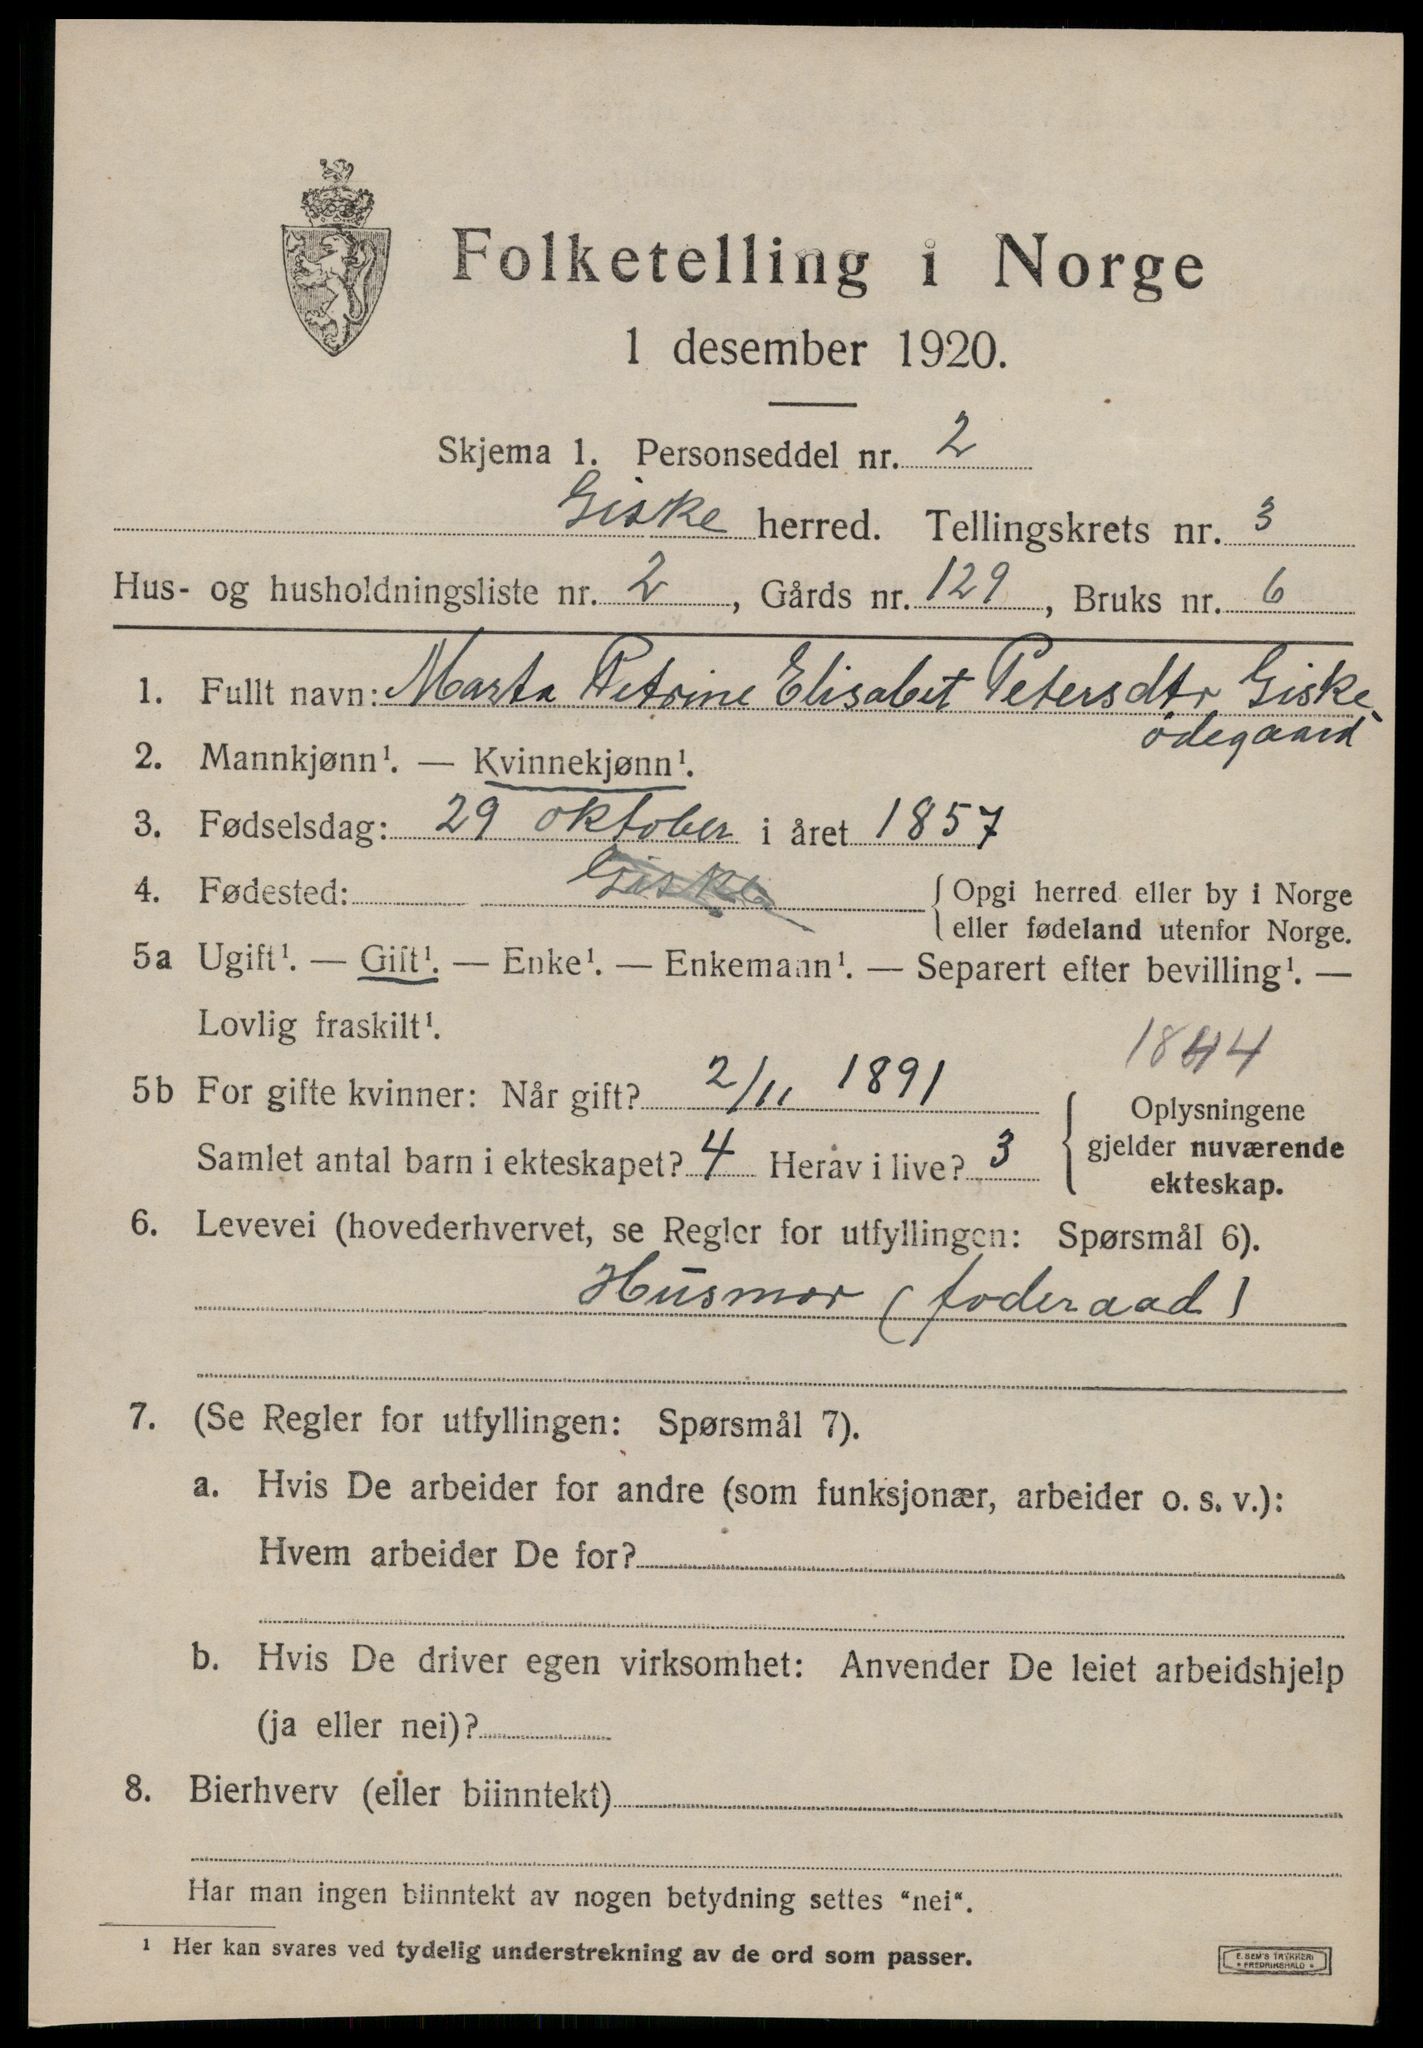 Folketelling i Norge
1 desember 1920.
Skjema 1. Personseddel nr. 2
Giske herred. Tellingskrets nr. 3
Hus- og husholdningsliste nr. 2, Gårds nr. 129, Bruks nr. 6
1. Fullt navn: Marta Petrine Elisabet Petersdtr Giske
ødegaard
2. Mannkjønn¹. — Kvinnekjønn¹.
3. Fødselsdag: 29 oktober i året 1857
4. Fødested: Giske { Opgi herred eller by i Norge
eller fødeland utenfor Norge.
5a Ugift¹. — Gift¹. — Enke¹. — Enkemann¹. — Separert efter bevilling¹. —
Lovlig fraskilt¹.
1844
5b For gifte kvinner: Når gift? 2/11 1891
Samlet antal barn i ekteskapet? 4 Herav i live? 3
{ Oplysningene
gjelder nuværende
ekteskap.
6. Levevei (hovederhvervet, se Regler for utfyllingen: Spørsmål 6).
Husmor (foderaad)
7. (Se Regler for utfyllingen: Spørsmål 7).
a. Hvis De arbeider for andre (som funksjonær, arbeider o. s. v.):
Hvem arbeider De for?
b. Hvis De driver egen virksomhet: Anvender De leiet arbeidshjelp
(ja eller nei)?
8. Bierhverv (eller biinntekt)
Har man ingen biinntekt av nogen betydning settes “nei“.
¹ Her kan svares ved tydelig understrekning av de ord som passer.
E. SEM'S TRYKKERI
• FREDRIKSHALD •